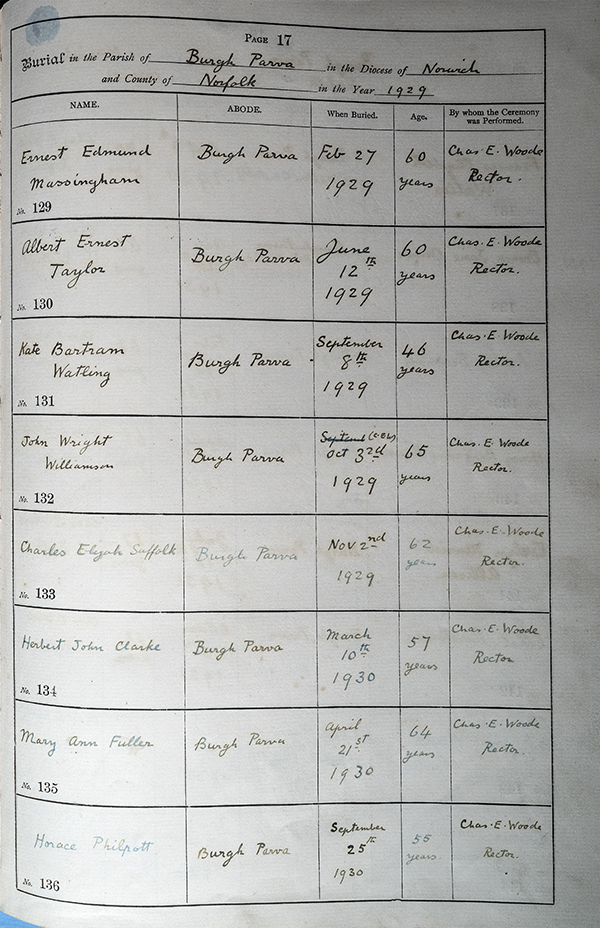 PAGE 17
Burial in the Parish of Burgh Parva in the Diocese of Norwich
and County of Norfolk in the Year 1929
NAME. ABODE. When Buried. Age. By whom the Ceremony was Performed.
Ernest Edmund
Massingham
No. 129
Burgh Parva
Feb 27
1929
60
years
Chas. E. Woode
Rector.
Albert Ernest
Taylor
No. 130
Burgh Parva
June
12th
1929
60
years
Chas. E. Woode
Rector.
Kate Bartram
Watling
No. 131
Burgh Parva
September
8th
1929
46
years
Chas. E. Woode
Rector.
John Wright
Williamson
No. 132
Burgh Parva
Oct 3rd
1929
65
years
Chas. E. Woode
Rector.
Charles Elijah Suffolk
No. 133
Burgh Parva
Nov 2nd
1929
62
years
Chas. E. Woode
Rector.
Herbert John Clarke
No. 134
Burgh Parva
March
10th
1930
57
years
Chas. E. Woode
Rector
Mary Ann Fuller
No. 135
Burgh Parva
April
21st
1930
64
years
Chas. E. Woode
Rector.
Horace Philpott
No. 136
Burgh Parva
September
25th
1930
55
years
Chas. E. Woode
Rector.